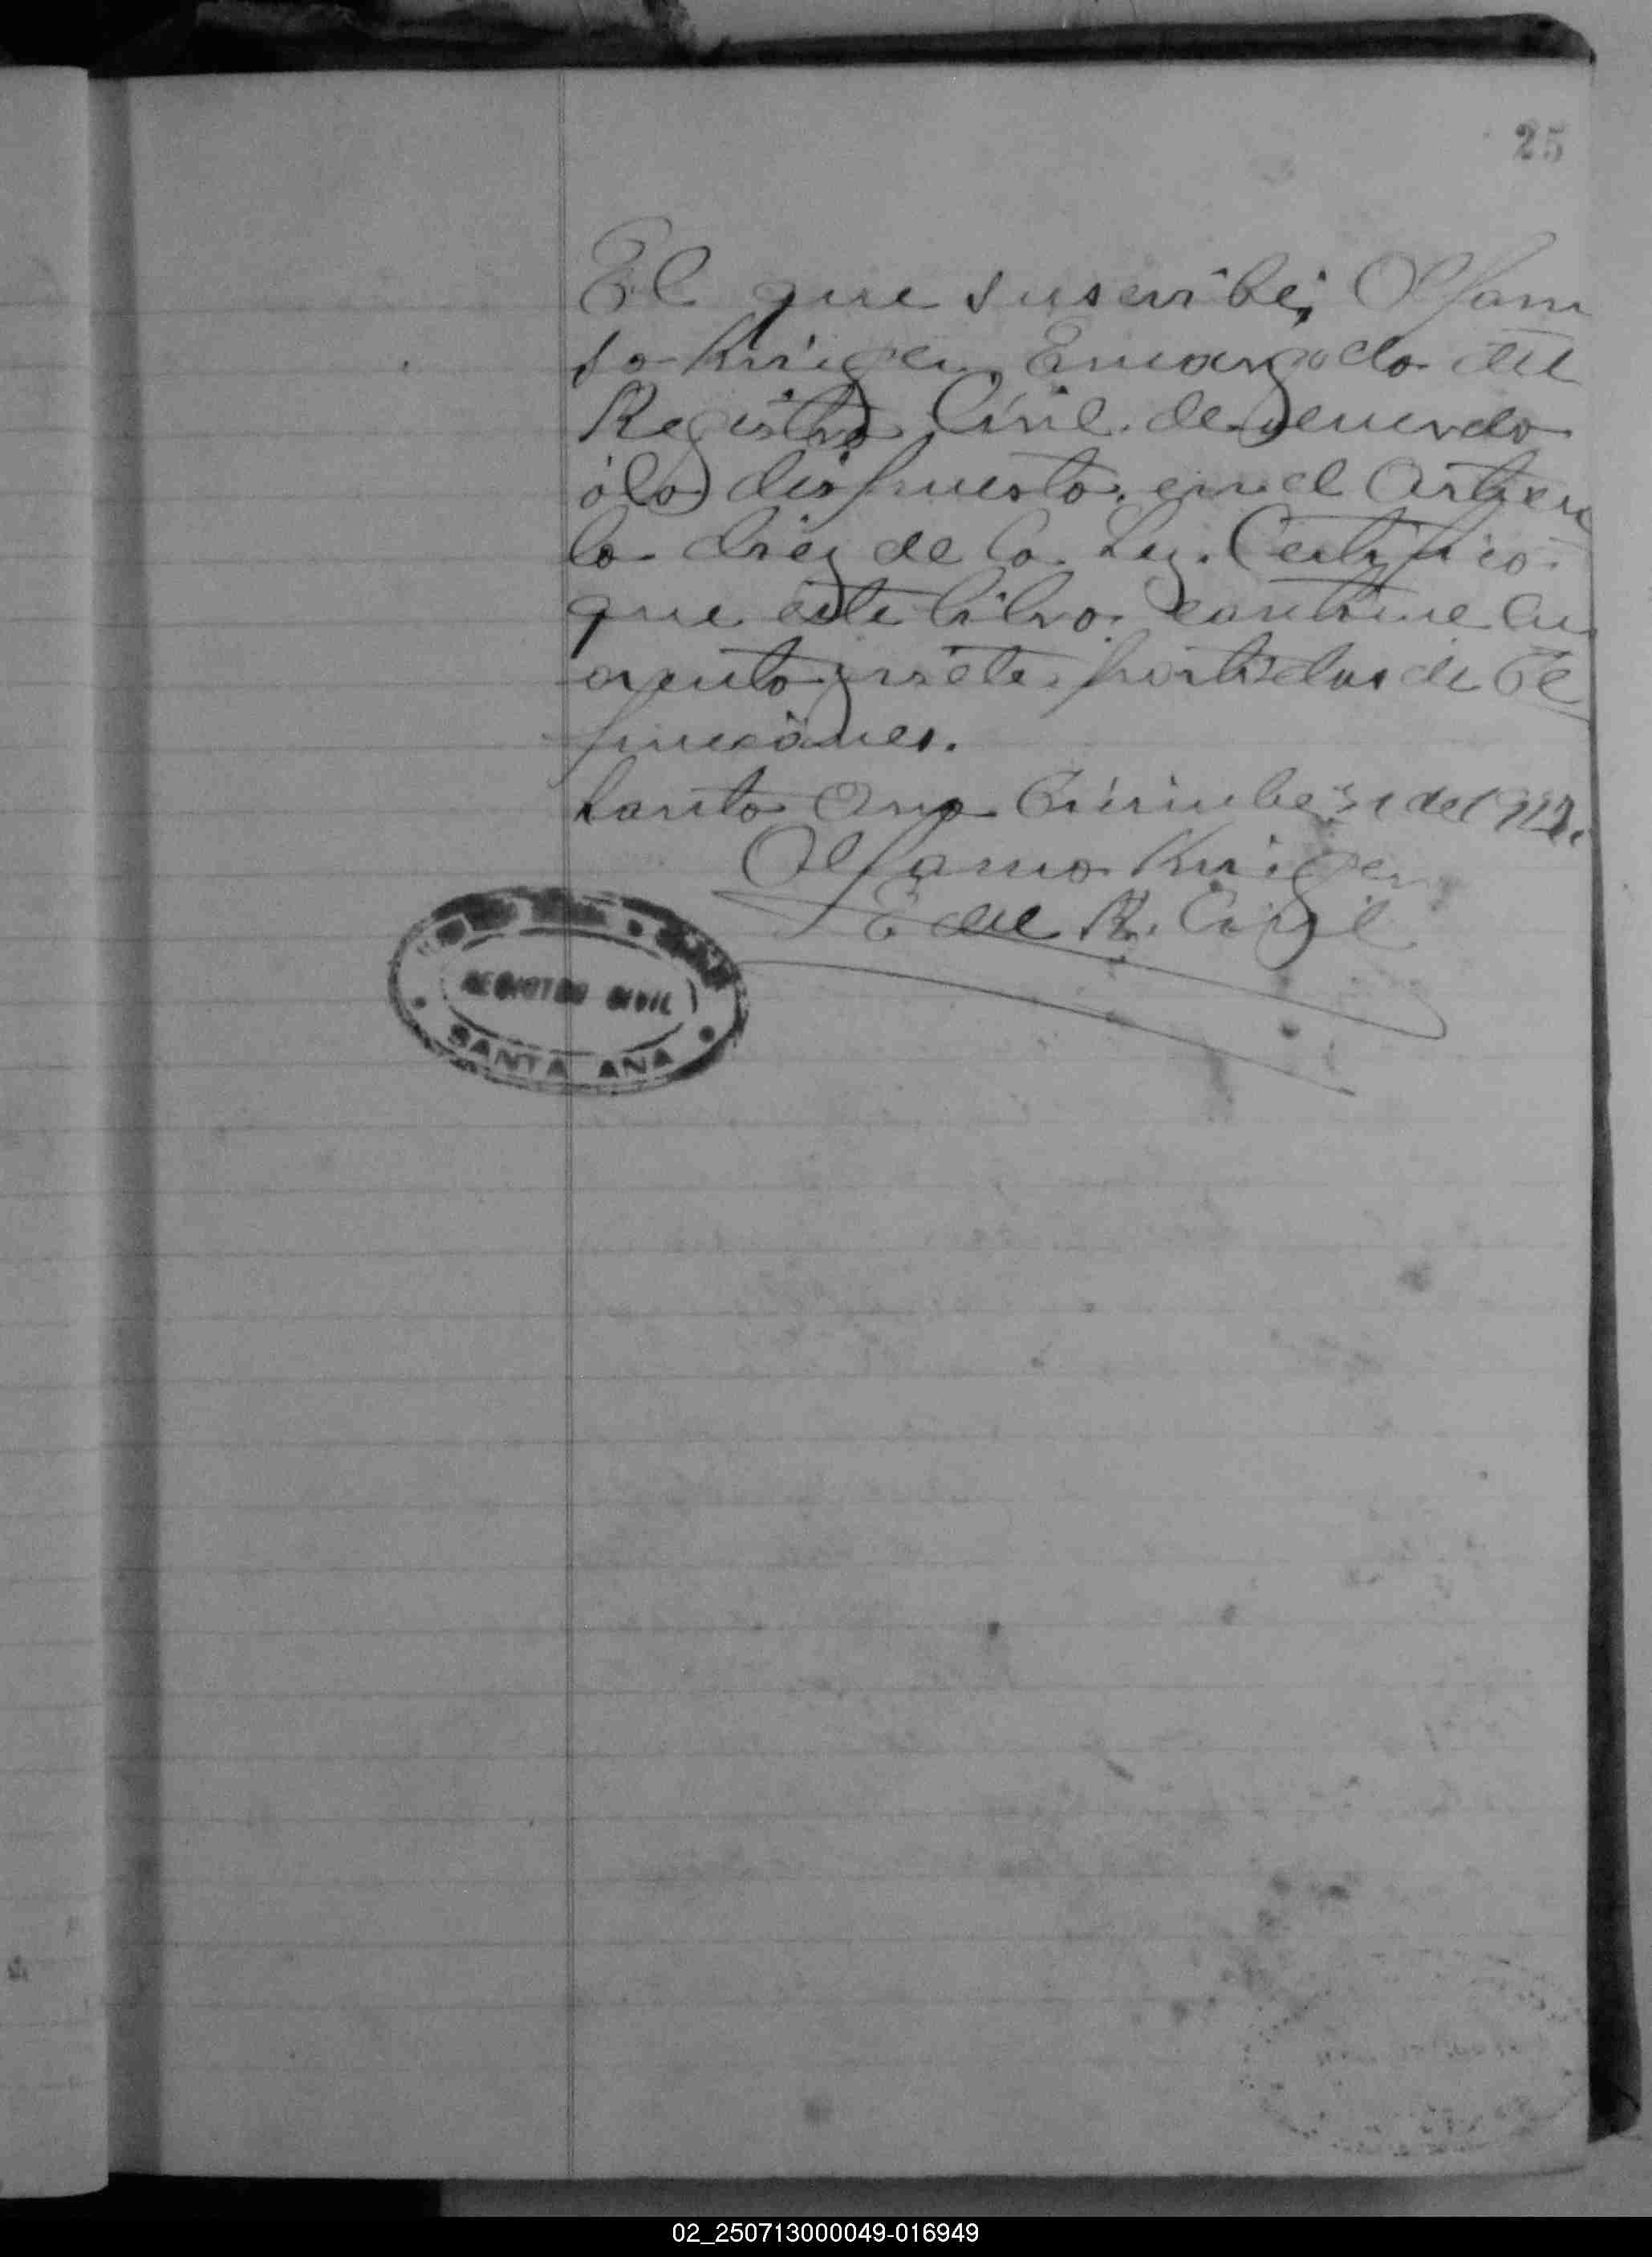 25
El que suscribe; Alfon
so Kruger, Encargado del
Registro Civil. de acuerdo
á lo dispuesto. en el Artícu
lo diez de la Ley. Certifico
que este libro. contiene cu
arenta y siete partidas de De
funciones.
Santa Ana Diciembre 31 del
Alfonso Kruger
E del R. Civil
REGISTRO CIVIL
SANTA ANA
02_250713000049-016949